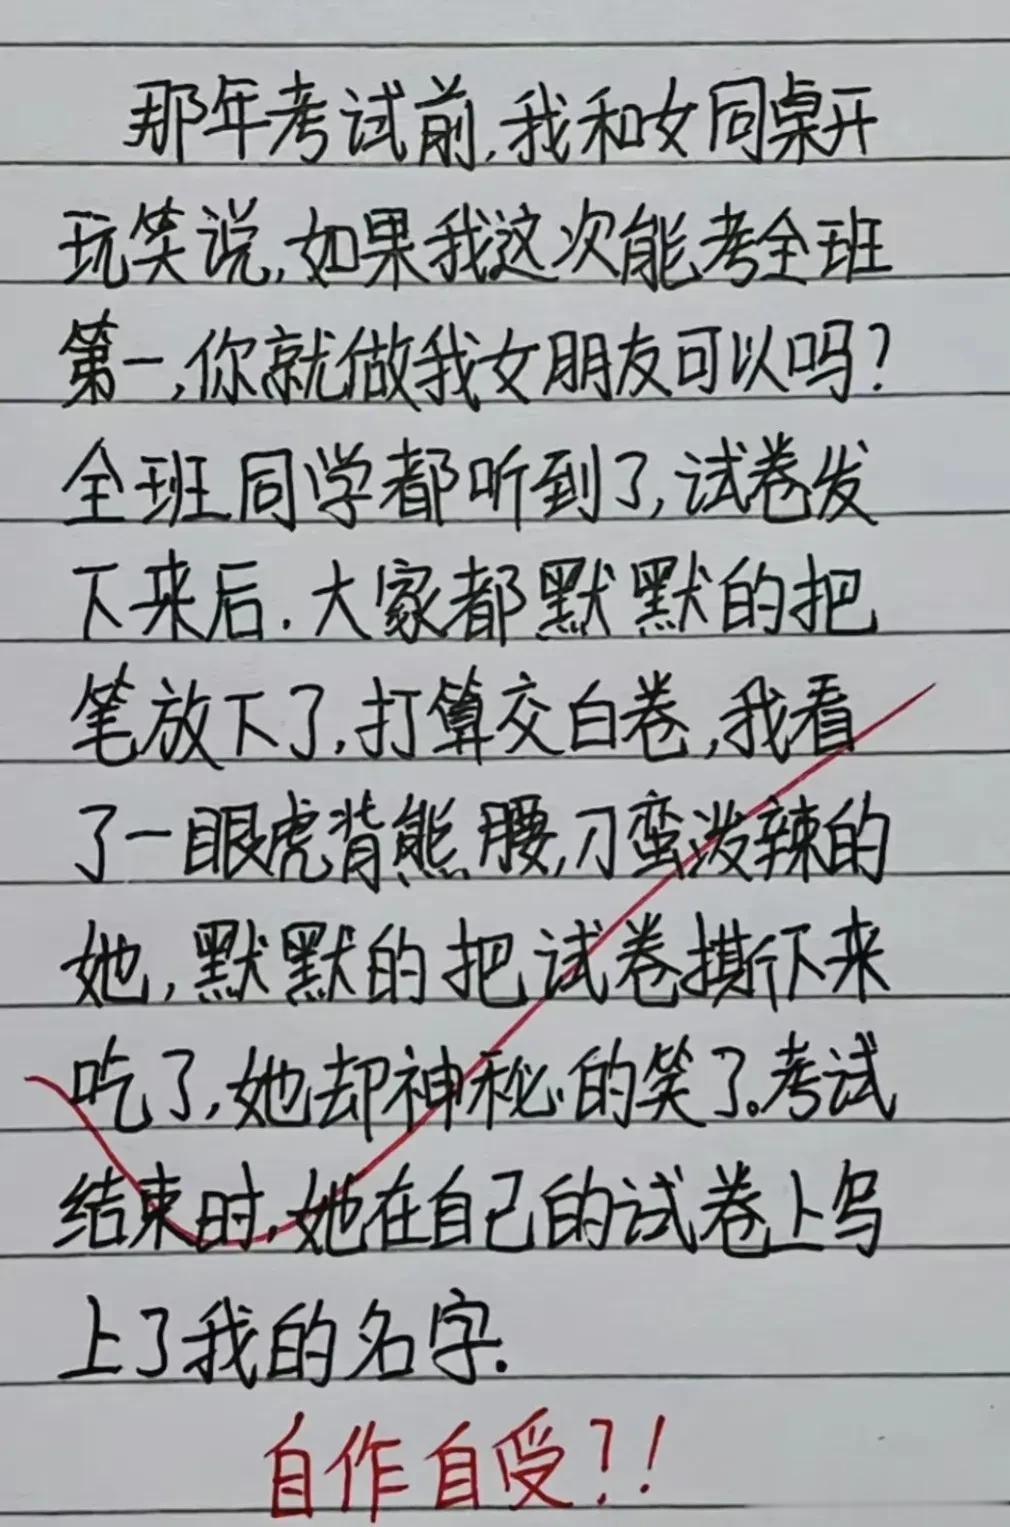 那年考试前,我和女同桌开
玩笑说,如果我这次能考全班
第一,你就做我女朋友可以吗?
全班同学都听到了,试卷发
下来后.大家都默默的把
笔放下了,打算交白卷,我看
了一眼虎背熊腰,刁蛮泼辣的
她,默默的把试卷撕下来
吃了,她却神秘的笑了。考试
结束时,她在自己的试卷上写
上了我的名字.
自作自受?!